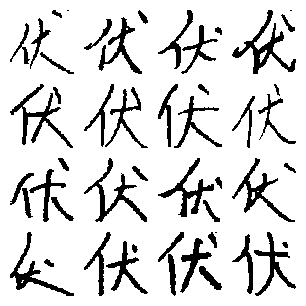 伏伏伏伏
伏伏伏伏
伏伏伏伏
伏伏伏伏